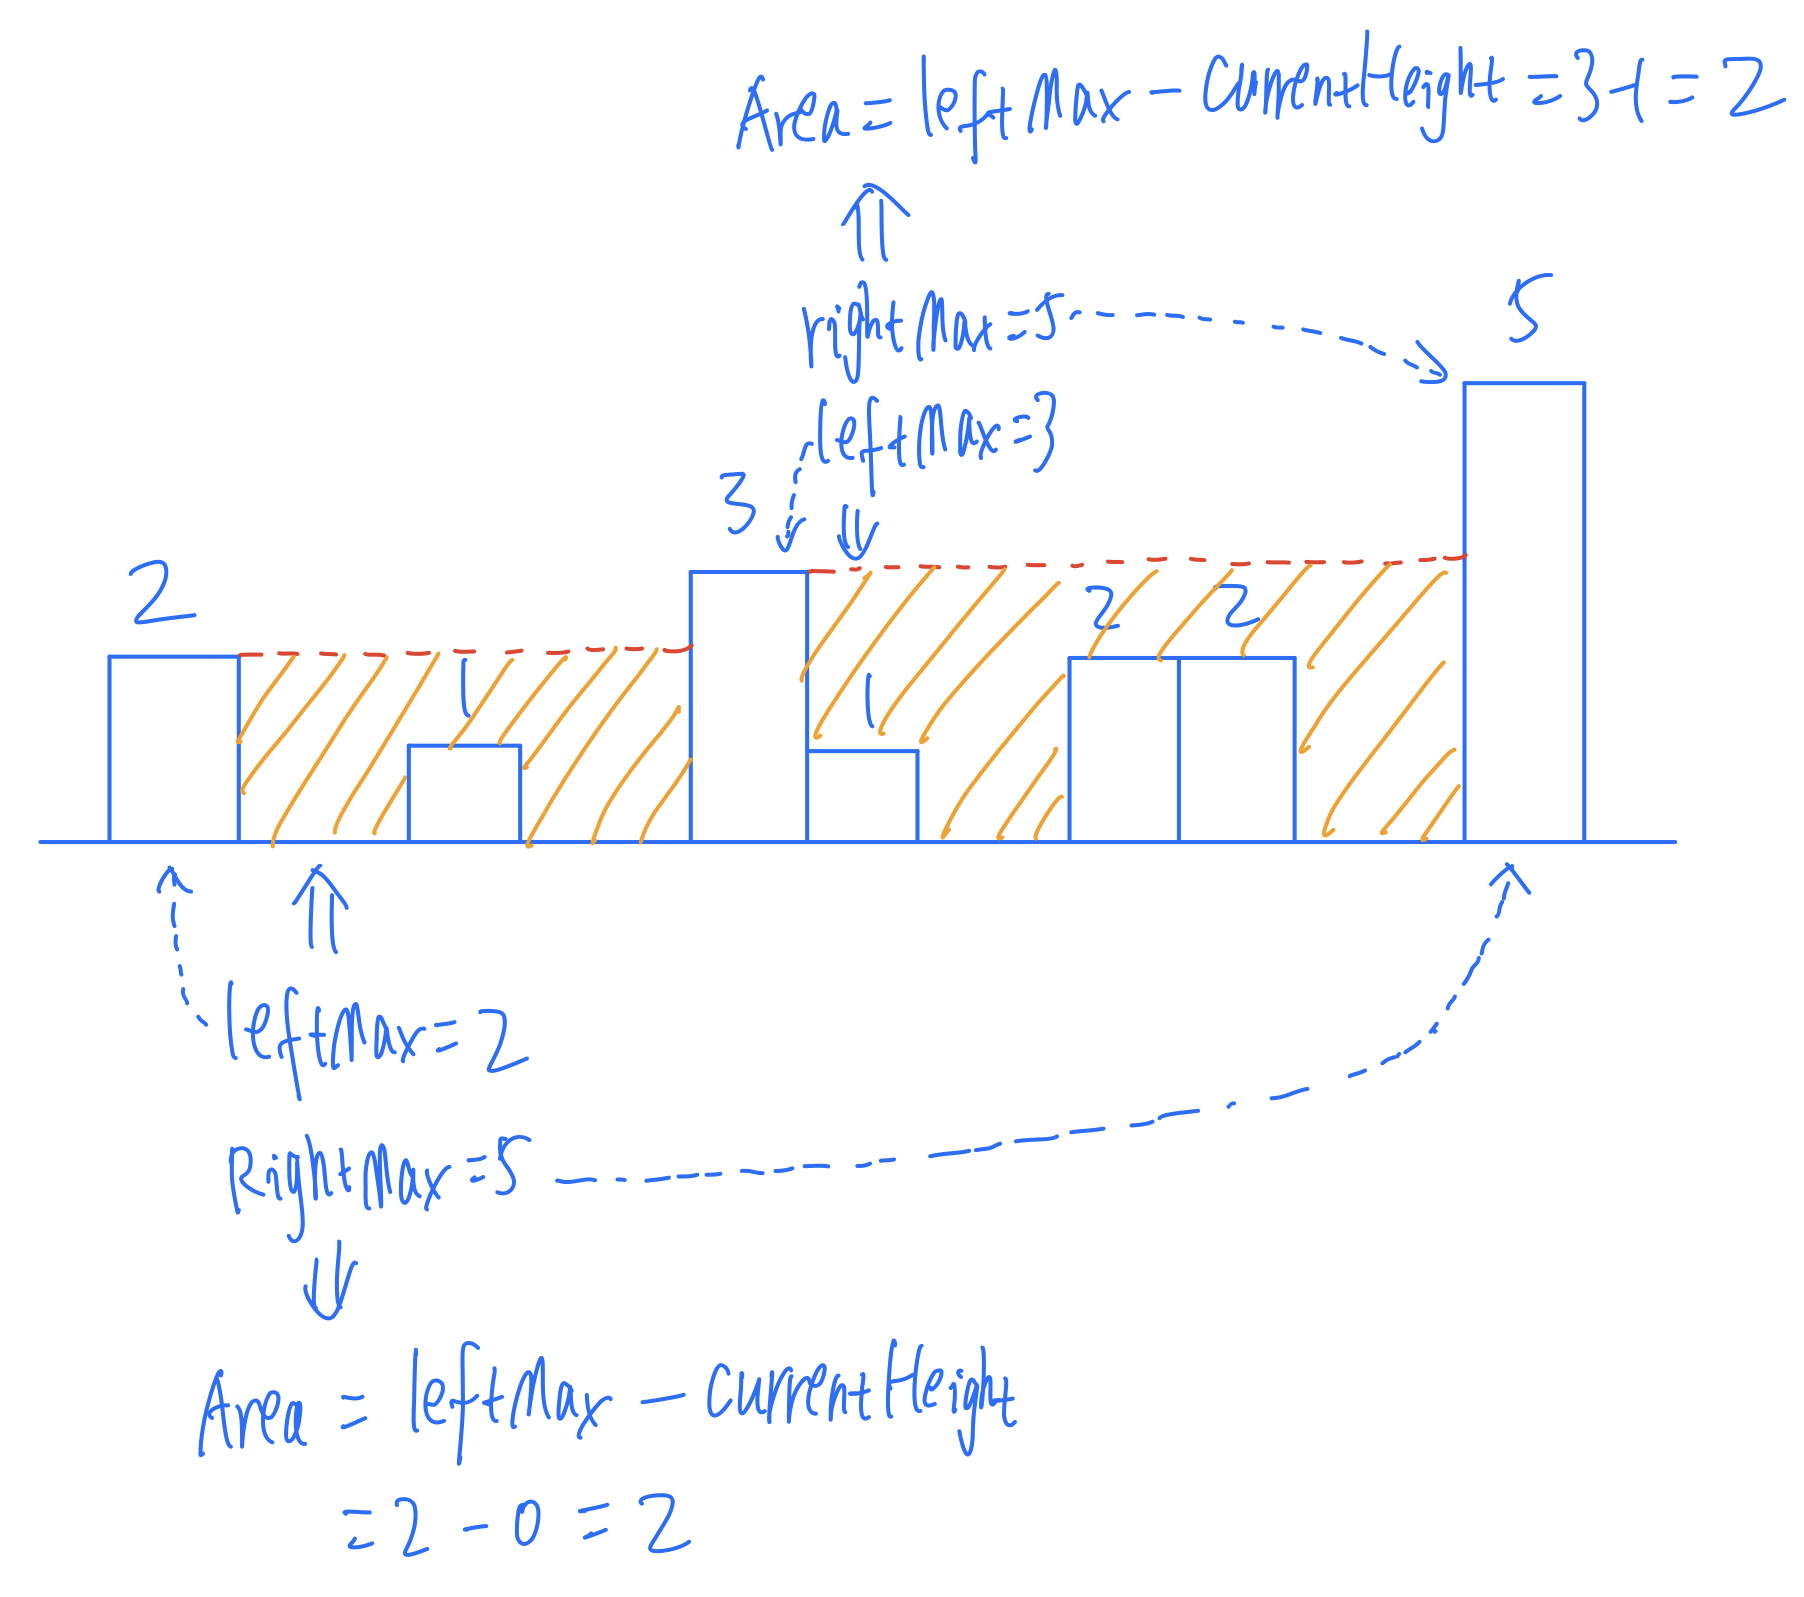 Area = leftMax - currentHeight = 3-1 = 2
rightMax = 5
5
leftMax = 3
3
2
2
2
1
1
leftMax = 2
RightMax = 5
Area = leftMax - currentHeight
= 2 - 0 = 2